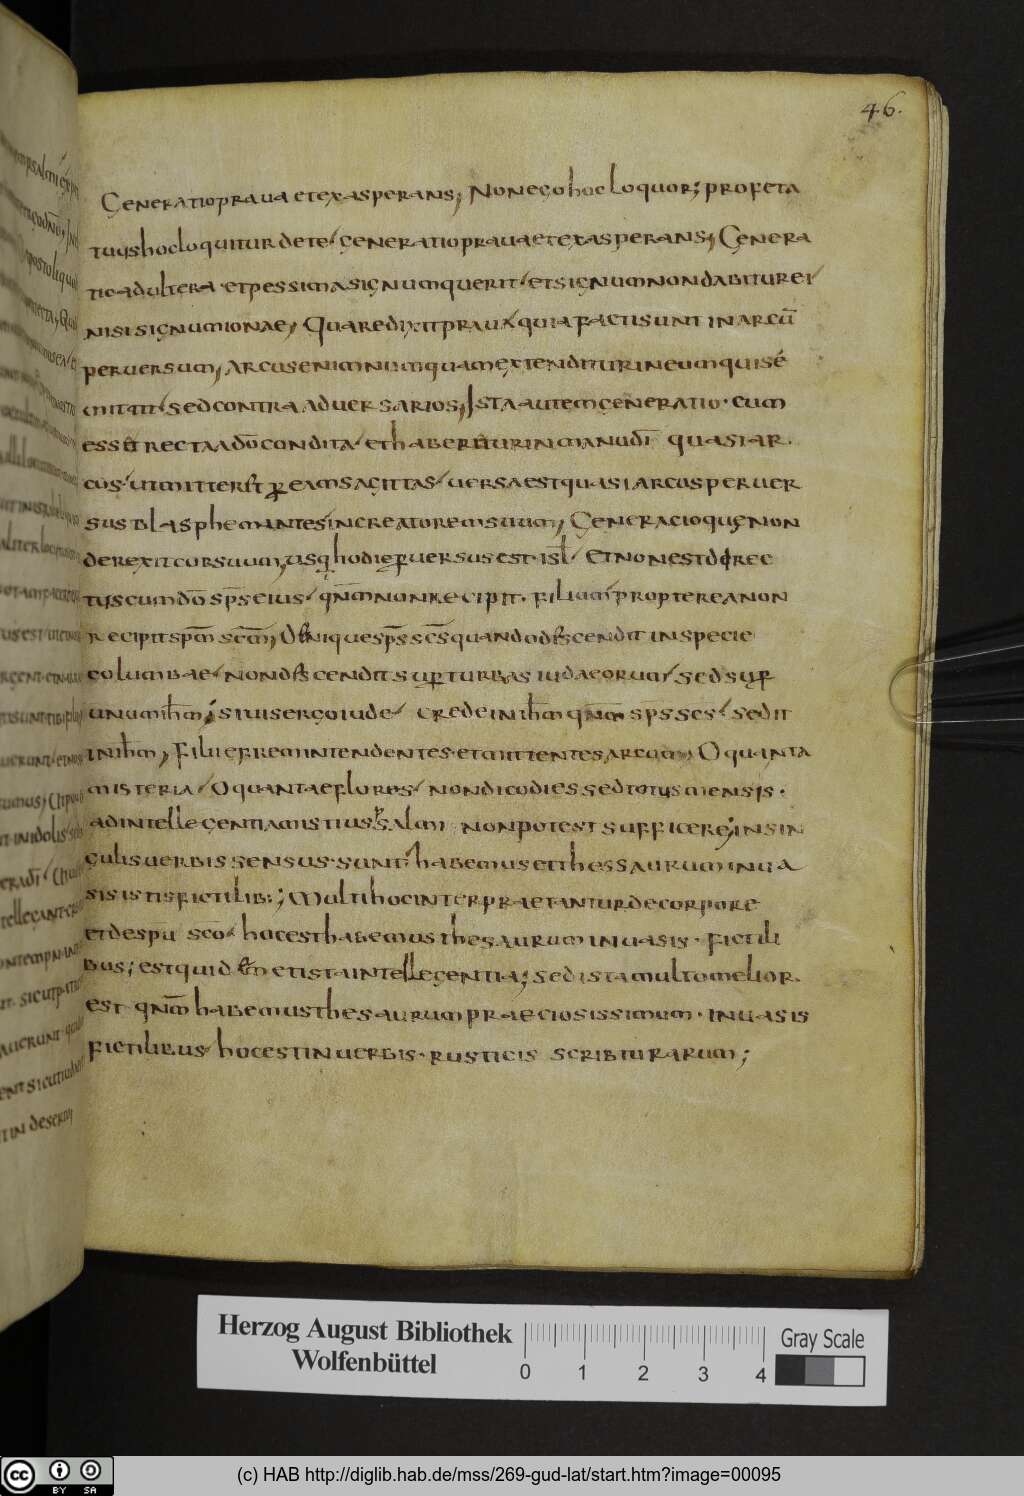 46.
Generatio praua et exasperans, Non ego hoc loquor; profeta
tuus hoc loquitur de te, generatio praua et exasperans, Genera
tio adultera et pessima signum querit, et signum non dabitur ei
nisi signum ionae, Quare dixit praua quia facti sunt in arcū
peruersum, Arcus enim numquam extenditur in eum qui sé
mittit, sed contra aduersarios, Ista autem generatio cum
esset recta a dō condita, et haberetur in manu dī quasi ar
cus, ut mitteret ꝑ eam sagittas, uersa est quasi arcus peruer
sus blasphemantes in creatorem suum, Generacio que non
derexit cor suum, usq hodie ꝑuersus est isl, Et non est direc
tus cum dō sps eius, qnm non recipit filium, propterea non
recipit spm scm, Denique sps scs quando descendit in specie
columbae, non descendit sup turbas iudaeorum, sed sup
unum ihm; Si uis ergo iude, crede in ihm qnm sps scs, sedit
in ihm, Filii efrem intendentes et mittentes arcum, O quanta
misteria, O quanta flores, non dico dies sed totus mensis
ad intellegentiam istius salmi non potest sufficere, in sin
gulis uerbis sensus sunt, habemus et thessaurum in ua
sis istis fictilib; Multi hoc interpraetantur de corpore
et de spu sco, hoc est habemus thesaurum in uasis fictili
bus; est quidem et ista intellegentia; sed ista multo melior
est qnm habemus thesaurum praeciosissimum in uasis
fictilibus hoc est in uerbis rusticis scribturarum;
Herzog August Bibliothek
Wolfenbüttel
0 1 2 3 4
Gray Scale
cc BY SA
(c) HAB http://diglib.hab.de/mss/269-gud-lat/start.htm?image=00095